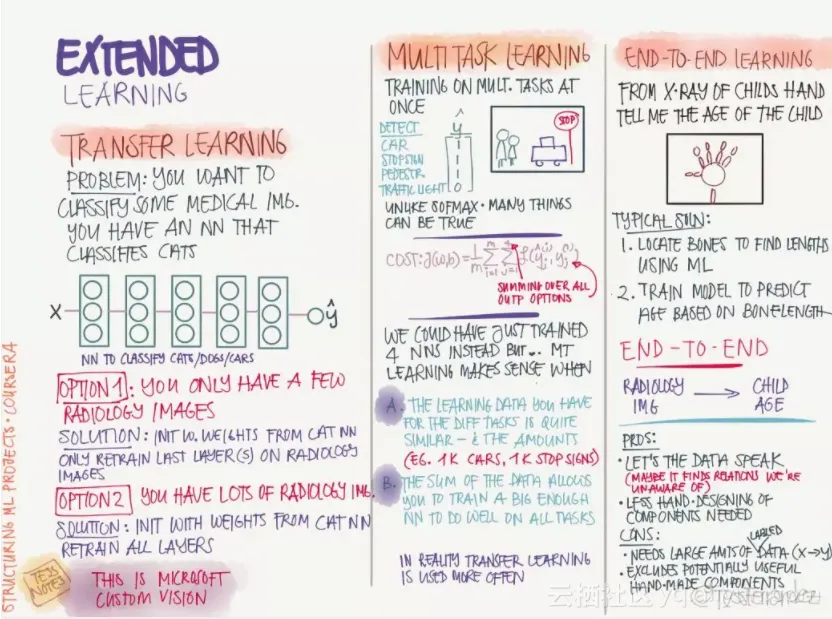 EXTENDED
LEARNING
TRANSFER LEARNING
PROBLEM: YOU WANT TO
CLASSIFY SOME MEDICAL IMG.
YOU HAVE AN NN THAT
CLASSIFIES CATS
X
ŷ
NN TO CLASSIFY CATS/DOGS/CARS
OPTION 1: YOU ONLY HAVE A FEW
RADIOLOGY IMAGES
SOLUTION: INIT W. WEIGHTS FROM CAT NN
ONLY RETRAIN LAST LAYER(S) ON RADIOLOGY
IMAGES
OPTION 2 YOU HAVE LOTS OF RADIOLOGY IMG.
SOLUTION: INIT WITH WEIGHTS FROM CAT NN
RETRAIN ALL LAYERS
THIS IS MICROSOFT
CUSTOM VISION
TESS
NOTES
STRUCTURING ML PROJECTS · COURSERA
MULTI TASK LEARNING
TRAINING ON MULT. TASKS AT
ONCE
DETECT
CAR
STOPSIGN
PEDESTR.
TRAFFIC LIGHT
ŷ
1
0
STOP
UNLIKE SOFMAX · MANY THINGS
CAN BE TRUE
COST: J(ω,b) =
SUMMING OVER ALL
OUTP OPTIONS
WE COULD HAVE JUST TRAINED
4 NNS INSTEAD BUT... MT
LEARNING MAKES SENSE WHEN
A. THE LEARNING DATA YOU HAVE
FOR THE DIFF TASKS IS QUITE
SIMILAR - & THE AMOUNTS
(EG. 1K CARS, 1K STOP SIGNS)
B. THE SUM OF THE DATA ALLOWS
YOU TO TRAIN A BIG ENOUGH
NN TO DO WELL ON ALL TASKS
IN REALITY TRANSFER LEARNING
IS USED MORE OFTEN
END-TO-END LEARNING
FROM X-RAY OF CHILDS HAND
TELL ME THE AGE OF THE CHILD
TYPICAL SOLN:
1. LOCATE BONES TO FIND LENGTHS
USING ML
2. TRAIN MODEL TO PREDICT
AGE BASED ON BONELENGTH
END-TO-END
RADIOLOGY → CHILD
IMG AGE
PROS:
· LET'S THE DATA SPEAK
(MAYBE IT FINDS RELATIONS WE'RE
UNAWARE OF)
· LESS HAND-DESIGNING OF
COMPONENTS NEEDED
CONS:
LABLED
· NEEDS LARGE AMTS OF DATA (X→Y)
· EXCLUDES POTENTIALLY USEFUL
HAND-MADE COMPONENTS
云栖社区